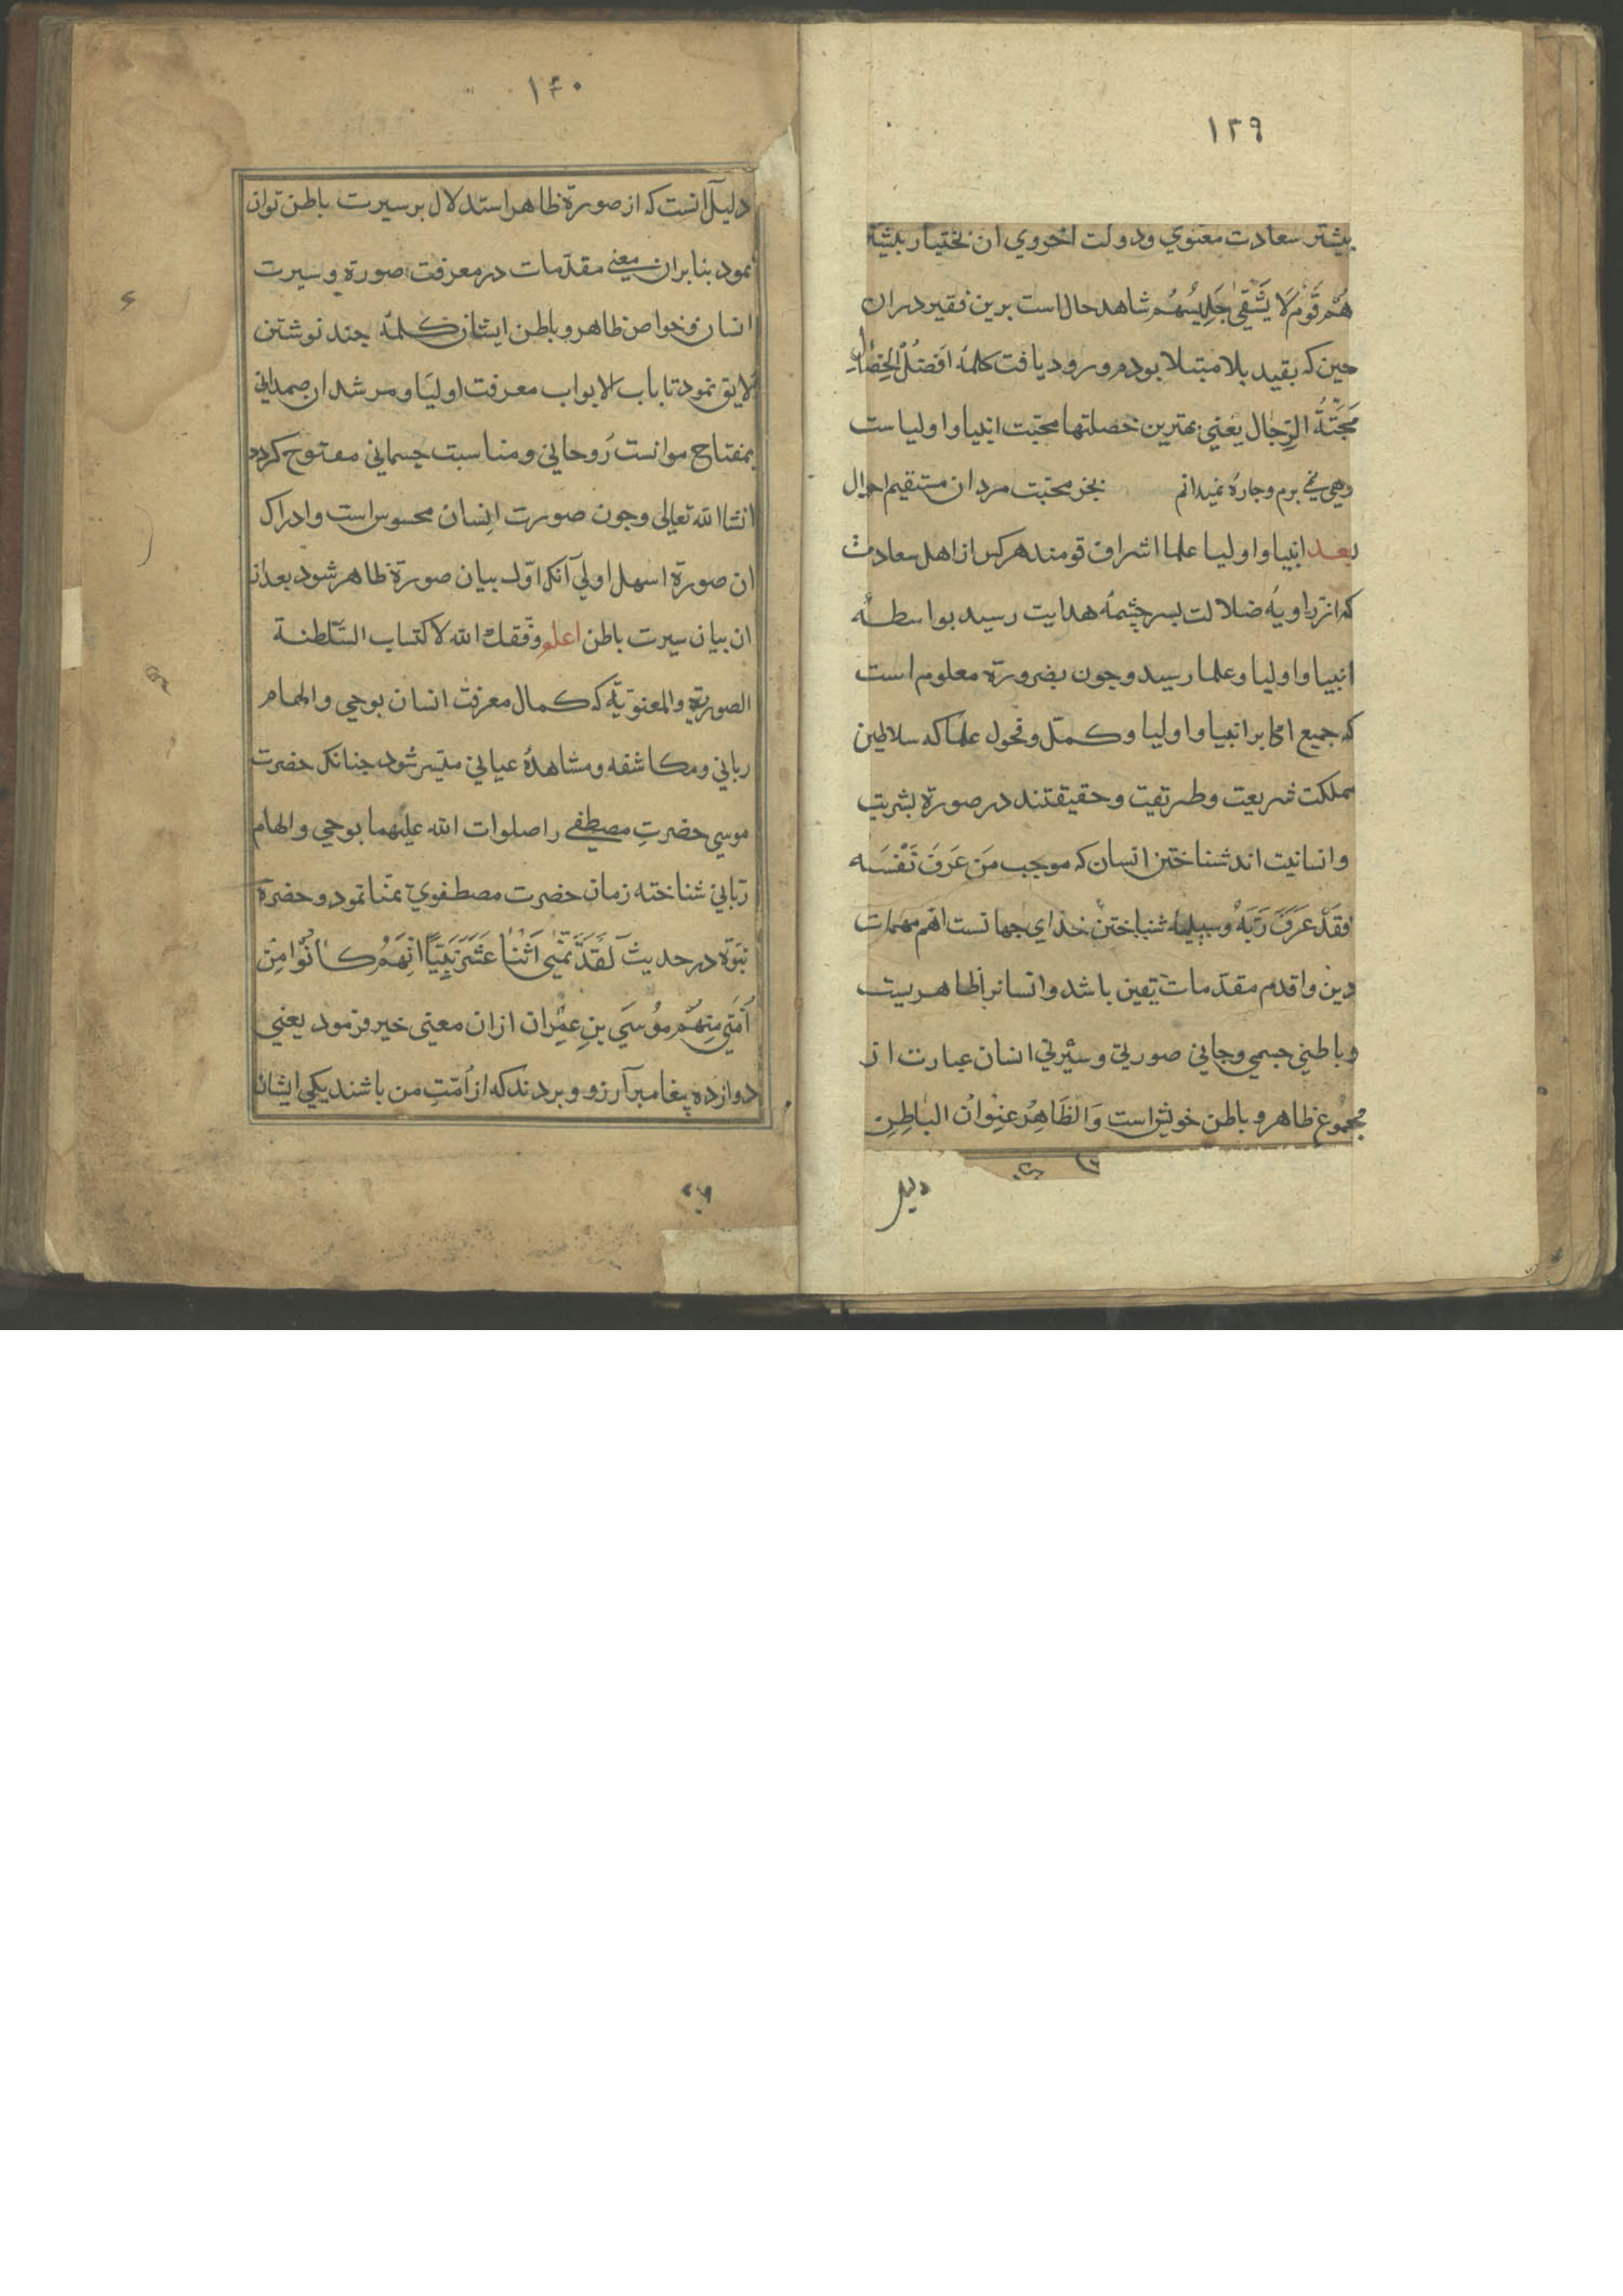 ١٣٩
بیشتر سعادت معنوي ودولت اخروي ان بختیار بیشتر
هُمْ قَوْمٌ لَا يَشْقٰي جَلِيسُهُمْ شاهد حال است برین فقیر دران
حین که بقید بلا مبتلا بودم ورود یافت کلمهٔ اَفضَلُ الْخِصَالِ
مَحَبَّةُ الرِّجَال یعني بهترین خصلتها محبّت انبیا و اولیاست
رهي نمي برم وجاره نمیدانم بجز محبّت مردان مستقیم احوال
بعد انبیا و اولیا علما اشراف قومند هرکس از اهل سعادت
که از زاویهٔ ضلالت بسرچشمهٔ هدایت رسید بواسطهٔ
انبیا و اولیا وعلما رسید وجون بضرورة معلوم است
که جمیع اکابر انبیا و اولیا وکمّل وفحول علما که سلاطین
مملکت شریعت وطریقت وحقیقتند در صورة بشریت
وانسانیت اند شناختن انسان که موجب مَن عَرَفَ نَفْسَه
فَقَدْ عَرَفَ رَبَّهُ وسیلهٔ شناختن خداي جهانست اهم مهمات
دین واقدم مقدّمات یقین باشد وانسانرا ظاهریست
وباطني جسمي وجاني صورتي وسیرتي انسان عبارت از
مجموع ظاهر وباطن خویش است وَالظَاهِرُ عنِوانُ البَاطِنِ
دلیل
١٤٠
دلیل آنست که از صورة ظاهر استدلال بر سیرت باطن توان
نمود بنابران معني مقدّمات در معرفت صورة وسیرت
انسان وخواص ظاهر وباطن ایشان کلمهٔ جند نوشتن
لایق نمود تا باب الابواب معرفت اولیا ومرشدان صمداني
بمفتاح موانست رُوحاني ومناسبت جسماني مفتوح کردد
انشا الله تعالي وجون صورت اِنسان محسوس است وادراک
ان صورة اسهل اولي آنکه اوّل بیان صورة ظاهر شود بعد از
ان بیان سیرت باطن اعلم وفّقك الله لاکتساب السَّلطنة
الصوریّة والمعنویّة که کمال معرفت انسان بوحي والهام
رباني ومکاشفه ومشاهدهٔ عیاني میّسر شود جنانکه حضرت
موسي حضرتِ مصطفي را صلوات الله علیهما بوحي والهام
ربّاني شناخته زمان حضرت مصطفوي تمنّا نمود وحضرة
نبوّة در حدیث لَقَدْ تَمَنّٰي اثْنَا عَشَرَ نَبِيًّا اَنّهُمْ کَانُوْا مِنْ
اُمَّتِي مِنهُمْ مُوْسَي بنِ عِمْران ازان معني خبر فرمود یعني
دوازده پیغامبر آرزو وبردند که از اُمّتِ من باشند یکي ایشان